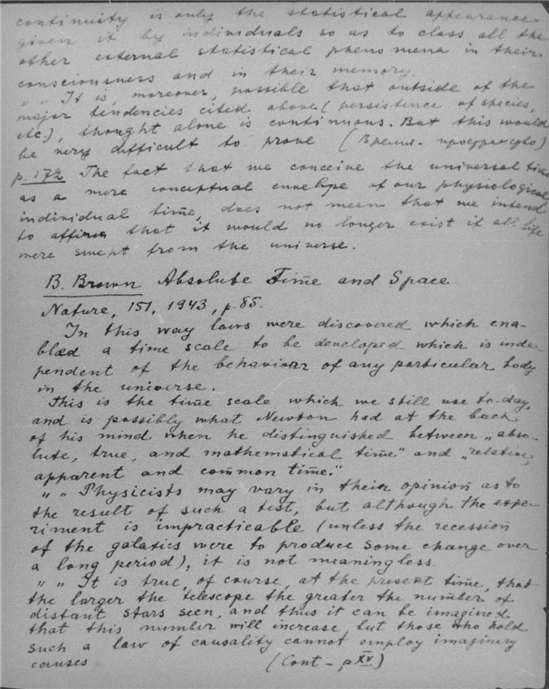 continuity is only the statistical appearance
given it by individuals so as to class all the
other external statistical phenomena in their
consciousness and in their memory.
" " It is, moreover, possible that outside of the
major tendencies cited above (persistence of species,
etc.), thought alone is continuous. But this would
be very difficult to prove (
p. 172 The fact that we conceive the universal time
as a mere conceptual envelope of our physiological
individual time, does not mean that we intend
to affirm that it would no longer exist if all life
were swept from the universe.
B. Brown Absolute Time and Space
Nature, 151, 1943, p. 85.
In this way laws were discovered which ena-
bled a time scale to be developed which is inde-
pendent of the behaviour of any particular body
in the universe.
This is the time scale which we still use to-day,
and is possibly what Newton had at the back
of his mind when he distinguished between „abso-
lute, true, and mathematical time" and „relative,
apparent and common time."
" " Physicists may vary in their opinion as to
the result of such a test, but although the expe-
riment is impracticable (unless the recession
of the galatics were to produce some change over
a long period), it is not meaningless.
" " It is true, of course, at the present time, that
the larger the telescope the greater the number of
distant stars seen, and thus it can be imagined
that this number will increase, but those who hold
such a law of causality cannot employ imaginary
causes (Cont – p XV)